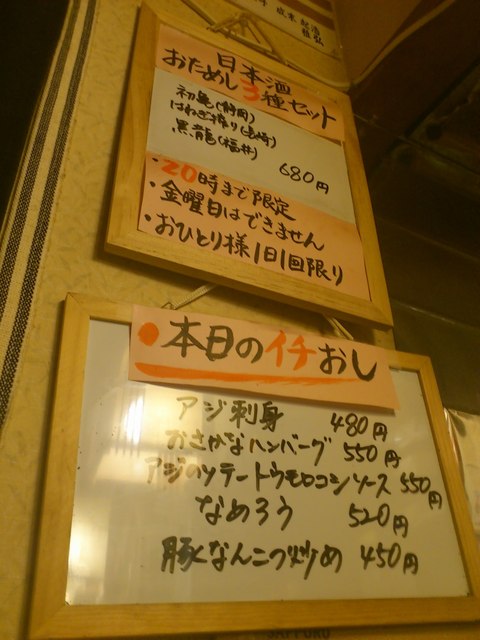 日本酒
おためし3種セット
初亀(静岡)
はねぎ搾り(長崎)
黒龍(福井)
680円
・20時まで限定
・金曜日はできません
・おひとり様1日1回限り
・本日のイチおし
アジ刺身 480円
おさかなハンバーグ 550円
アジのソテートウモロコシソース 550円
なめろう 520円
豚なんこつ炒め 450円
SAPPORO